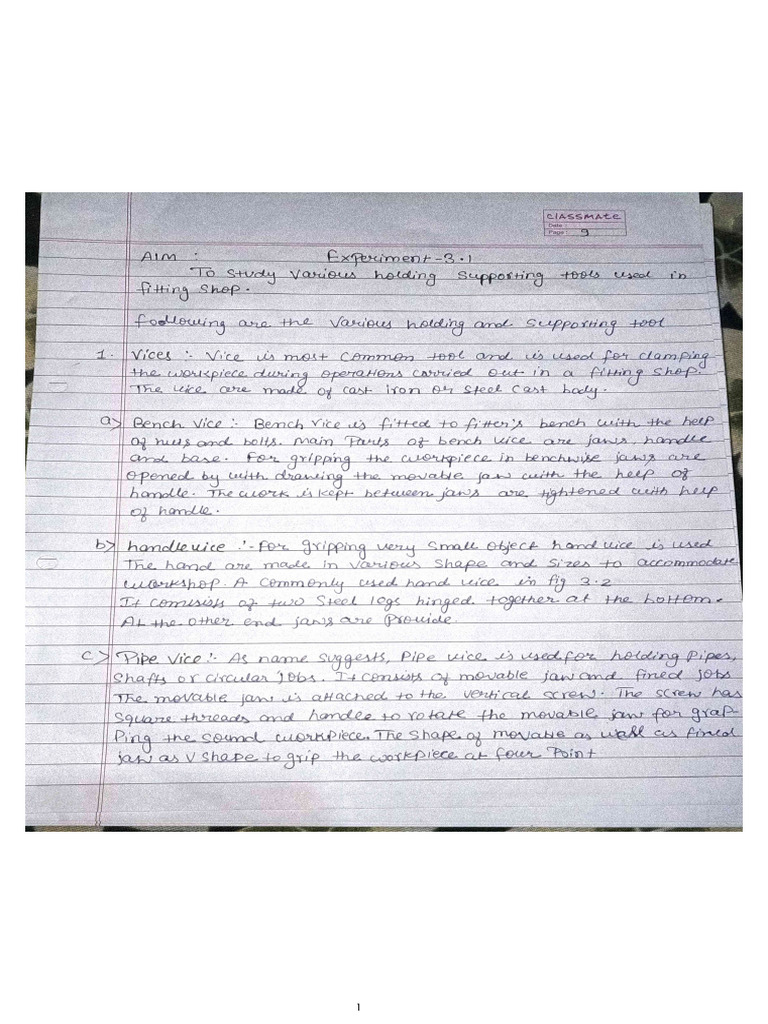 classmate
Date :
Page : 9
AIM : Experiment-3.1
To study various holding supporting tools used in
fitting shop.
Foollowing are the various holding and supporting tool
1. Vices :- Vice is most common tool and is used for clamping
the workpiece during operations carried out in a fitting shop.
The vice are made of cast iron or steel cast body.
a) Bench Vice :- Bench vice is fitted to fitter's bench with the help
of nuts and bolts. main Parts of bench vice are jaws, handle
and base. For gripping the workpiece in benchwise jaws are
opened by with drawing the movable jaw with the help of
handle. The work is kept between jaws are tightened with help
of handle.
b) handlevice :- For gripping very small object hand vice is used
The hand are made in various shape and sizes to accommodate
workshop. A commonly used hand vice in fig 3.2
It comsists of two steel legs hinged together at the bottom.
At the other end jaws are Provide.
c) Pipe Vice :- As name suggests, Pipe vice is used for holding Pipes,
shafts or circular jobs. It consists of movable jaw and fined jobs
The movable jaw is attached to the vertical screw. The screw has
square threads and handle to rotate the movable jaw for grap-
ping the sound workpiece. The shape of movable as well as fined
jaw as V shape to grip the workpiece at four Point
1